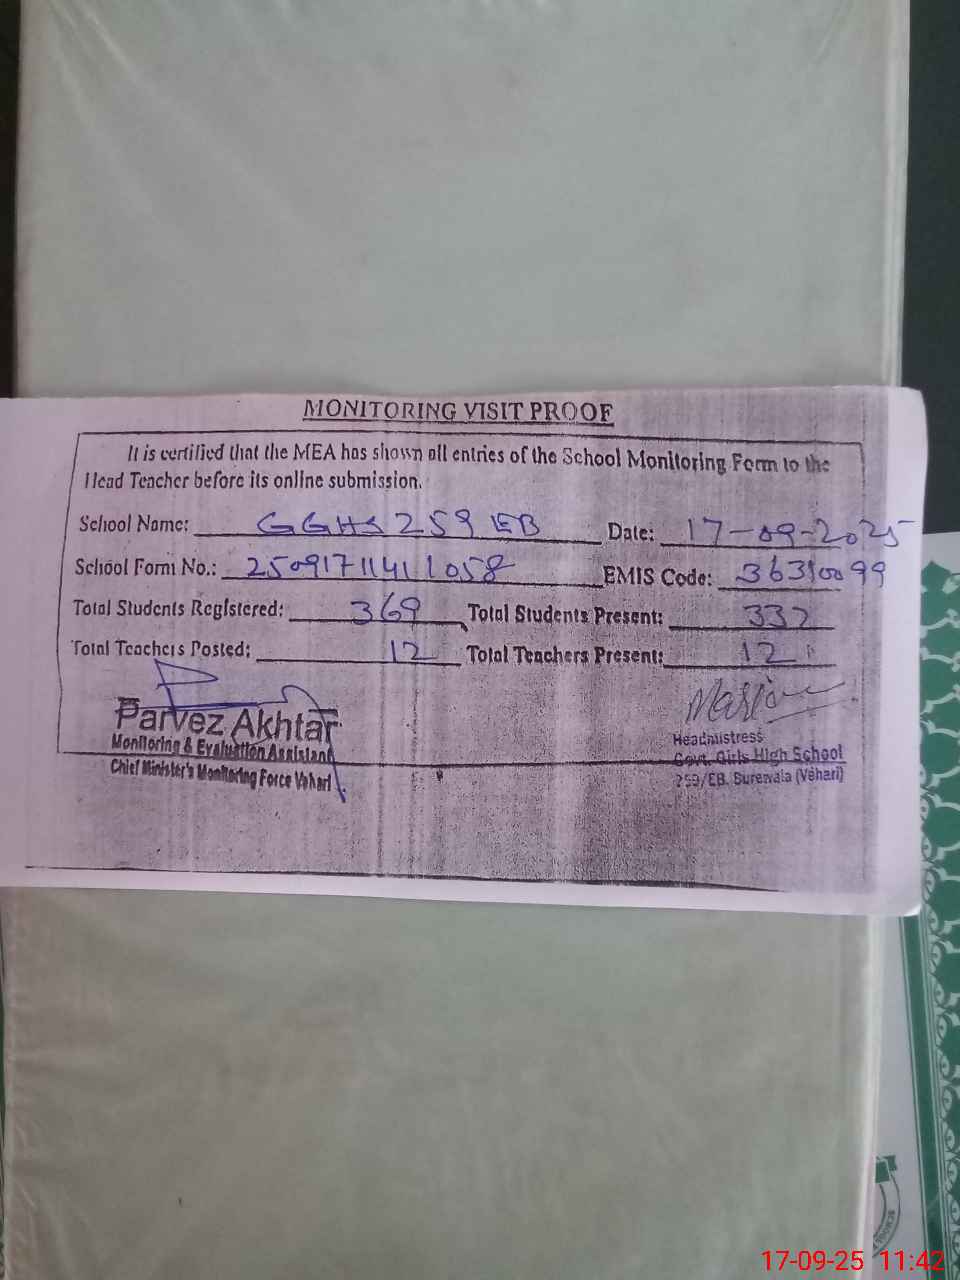 MONITORING VISIT PROOF
It is certified that the MEA has shown all entries of the School Monitoring Form to the
Head Teacher before its online submission.
School Name: GGHS 259 EB Date: 17-09-2025
School Form No.: 25091711411058 EMIS Code: 36310099
Total Students Registered: 369 Total Students Present: 332
Total Teachers Posted: 12 Total Teachers Present: 12
Parvez Akhtar
Monitoring & Evaluation Assistant
Chief Minister's Monitoring Force Vehari
Headmistress
Govt. Girls High School
259/EB, Burewala (Vehari)
17-09-25 11:42